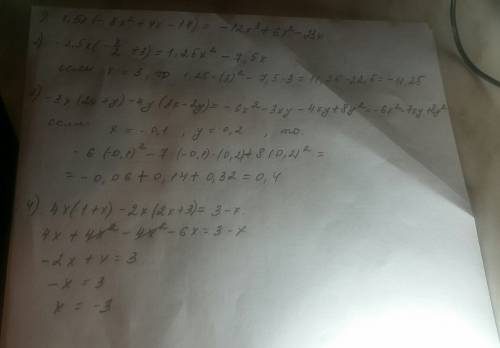 1,5x(-8x²+4x-14) = -12x³+6x²-
2) -2,5x(-x/2+3) = 1,25x²-7,5x
если x=3, то 1,25·(3)²-7,5·3=11,25-22,5=-11,25
3) -3x(2x+y)-4y(x-2y)=-6x²-3xy-4xy+8y²=-6x²-7xy+8y²
если x=-0,1, y=0,2, то
-6(-0,1)²-7·(-0,1)·(0,2)+8(0,2)²=
=-0,06+0,14+0,32=0,4
4) 4x(1+x)-2x(2x+3)=3-x
4x+4x²-4x²-6x=3-x
-2x+x=3
-x=3
x=-3